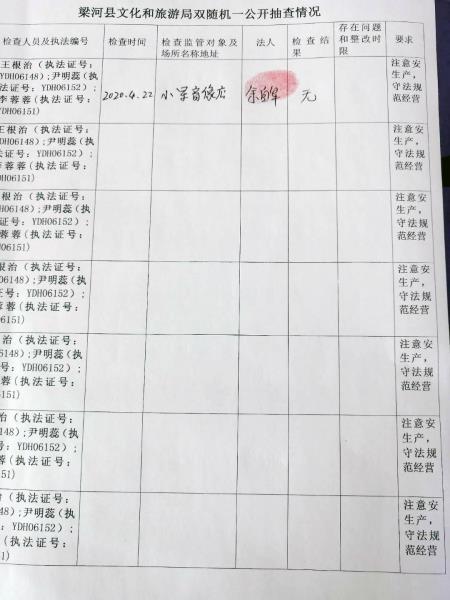 梁河县文化和旅游局双随机一公开抽查情况
检查人员及执法编号 检查时间 检查监管对象及场所名称地址 法人 检查结果 存在问题和整改时限 要求
王根治（执法证号：
YDH06148）；尹明蕊（执
法证号：YDH06152）；
李蓉蓉（执法证号：
YDH06151）
2020.4.22 无
注意安
生产，
守法规
范经营
王根治（执法证号：
DH06148）；尹明蕊（执
法证号：YDH06152）；
蓉蓉（执法证号：
DH06151）
注意安
生产，
守法规
范经营
根治（执法证号：
H06148）；尹明蕊（执
证号：YDH06152）；
蓉蓉（执法证号：
06151）
注意安
生产，
守法规
范经营
根治（执法证号：
06148）；尹明蕊（执
证号：YDH06152）；
蓉蓉（执法证号：
6151）
注意安
生产，
守法规
范经营
治（执法证号：
148）；尹明蕊（执
号：YDH06152）；
蓉（执法证号：
151）
注意安
生产，
守法规
范经营
治（执法证号：
148）；尹明蕊（执
：YDH06152）；
蓉（执法证号：
51）
注意安
生产，
守法规
范经营
（执法证号：
48）；尹明蕊（执
：YDH06152）；
（执法证号：
1）
注意安
生产，
守法规
范经营